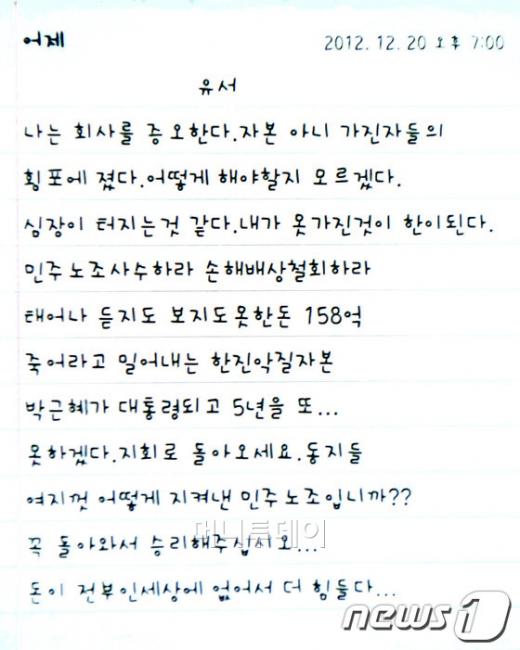 어제 2012. 12. 20 오후 7:00
유서
나는 회사를 증오한다.자본 아니 가진자들의
횡포에 졌다.어떻게 해야할지 모르겠다.
심장이 터지는것 같다.내가 못가진것이 한이된다.
민주노조사수하라 손해배상철회하라
태어나 듣지도 보지도못한돈 158억
죽어라고 밀어내는 한진악질자본
박근혜가 대통령되고 5년을 또...
못하겠다.지회로 돌아오세요.동지들
여지껏 어떻게 지켜낸 민주노조입니까??
꼭 돌아와서 승리해주십시오...
돈이 전부인세상에 없어서 더 힘들다...
머니투데이
news1